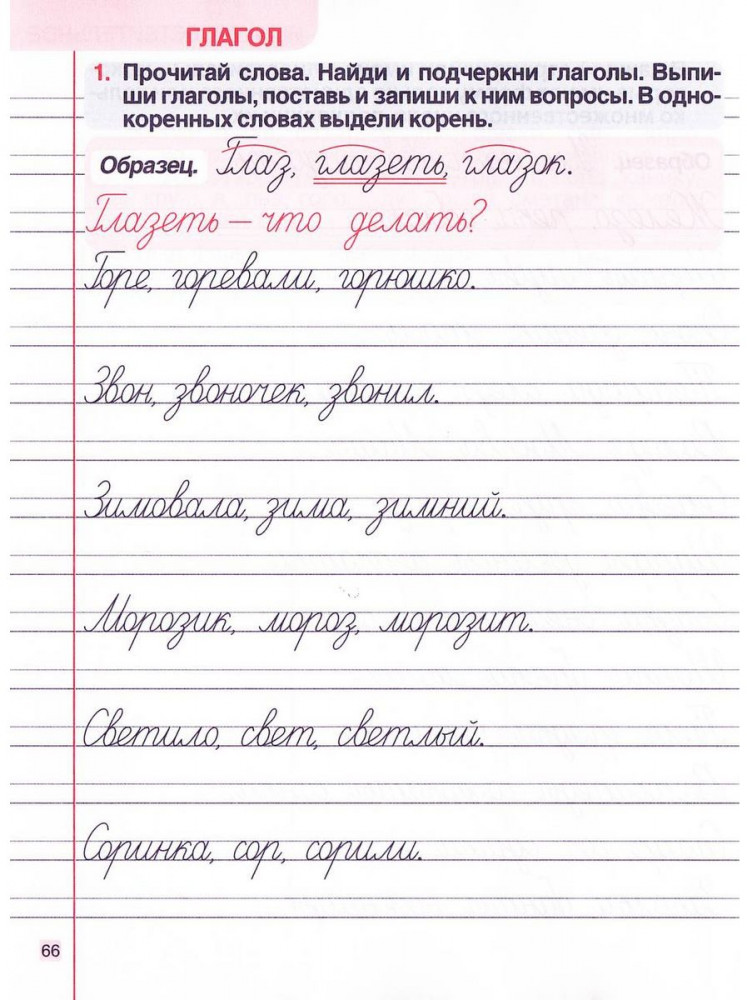 ГЛАГОЛ
1. Прочитай слова. Найди и подчеркни глаголы. Выпи-
ши глаголы, поставь и запиши к ним вопросы. В одно-
коренных словах выдели корень.
Образец. Глаз, глазеть, глазок.
Глазеть – что делать?
Горе, горевали, горюшко.
Звон, звоночек, звонил.
Зимовала, зима, зимний.
Морозик, мороз, морозит.
Светило, свет, светлый.
Соринка, сор, сорили.
66